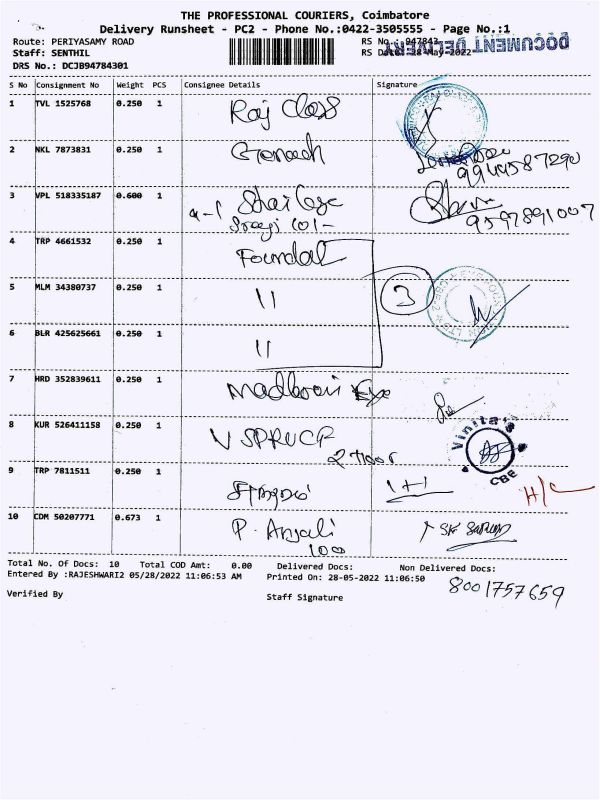 THE PROFESSIONAL COURIERS, Coimbatore
Delivery Runsheet - PC2 - Phone No.:0422-3505555 - Page No.:1
Route: PERIYASAMY ROAD
RS No.: 947843
DOCUMENT DELIVERED
Staff: SENTHIL
RS Date: 28-May-2022
DRS No.: DCJB94784301
S No Consignment No Weight PCS Consignee Details Signature
1 TVL 1525768 0.250 1 Raj
2 NKL 7873831 0.250 1
9944587290
3 VPL 518335187 0.600 1
101-
9597891007
4 TRP 4661532 0.250 1
5 MLM 34380737 0.250 1 11 3
6 BLR 425625661 0.250 1 11
7 HRD 352839611 0.250 1
8 KUR 526411158 0.250 1 V SPRUCE
2 Floor
Vinita's
CBE
9 TRP 7811511 0.250 1 1+1 H/C
10 CDM 50207771 0.673 1 P. Anjali
100
Total No. Of Docs: 10 Total COD Amt: 0.00 Delivered Docs: Non Delivered Docs:
Entered By :RAJESHWARI2 05/28/2022 11:06:53 AM Printed On: 28-05-2022 11:06:50
8001757659
Verified By Staff Signature